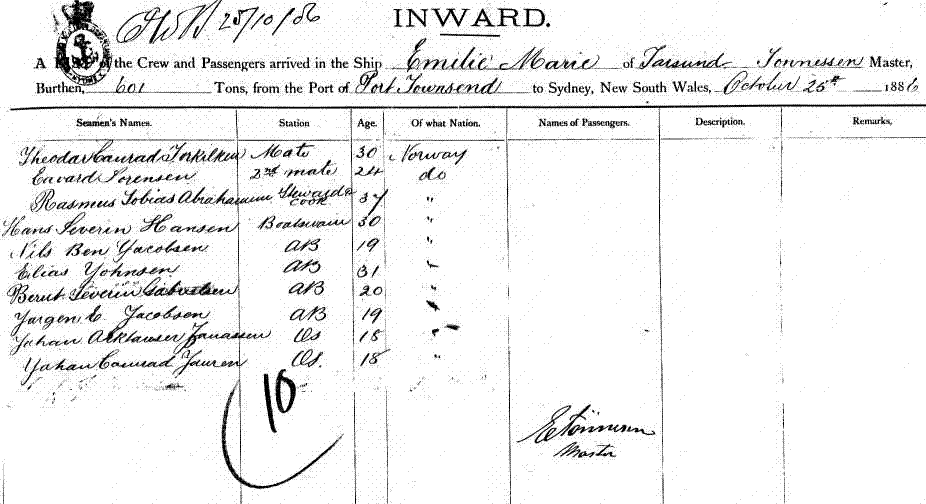 25/10/86
INWARD.
A of the Crew and Passengers arrived in the Ship Emilie Marie of Farsund Tonnessen Master,
Burthen, 601 Tons, from the Port of Port Townsend to Sydney, New South Wales, October 25th 1886
Seamen's Names. Station Age. Of what Nation. Names of Passengers. Description. Remarks,
Theodar Conrad Torkilsen Mate 30 Norway
Edvard Sorensen 2nd mate 24 do
Rasmus Tobias Abrahamsen Steward & cook 37 "
Hans Severin Hansen Boatswain 30 "
Nils Ben Yacobsen AB 19 "
Elias Yohnsen AB 31 "
Berut Severin AB 20 "
Yorgen C. Jacobsen AB 19 "
Yohan Janassen Os 18 "
Yohan Conrad Os. 18 "
10
E Tönnesen
Master